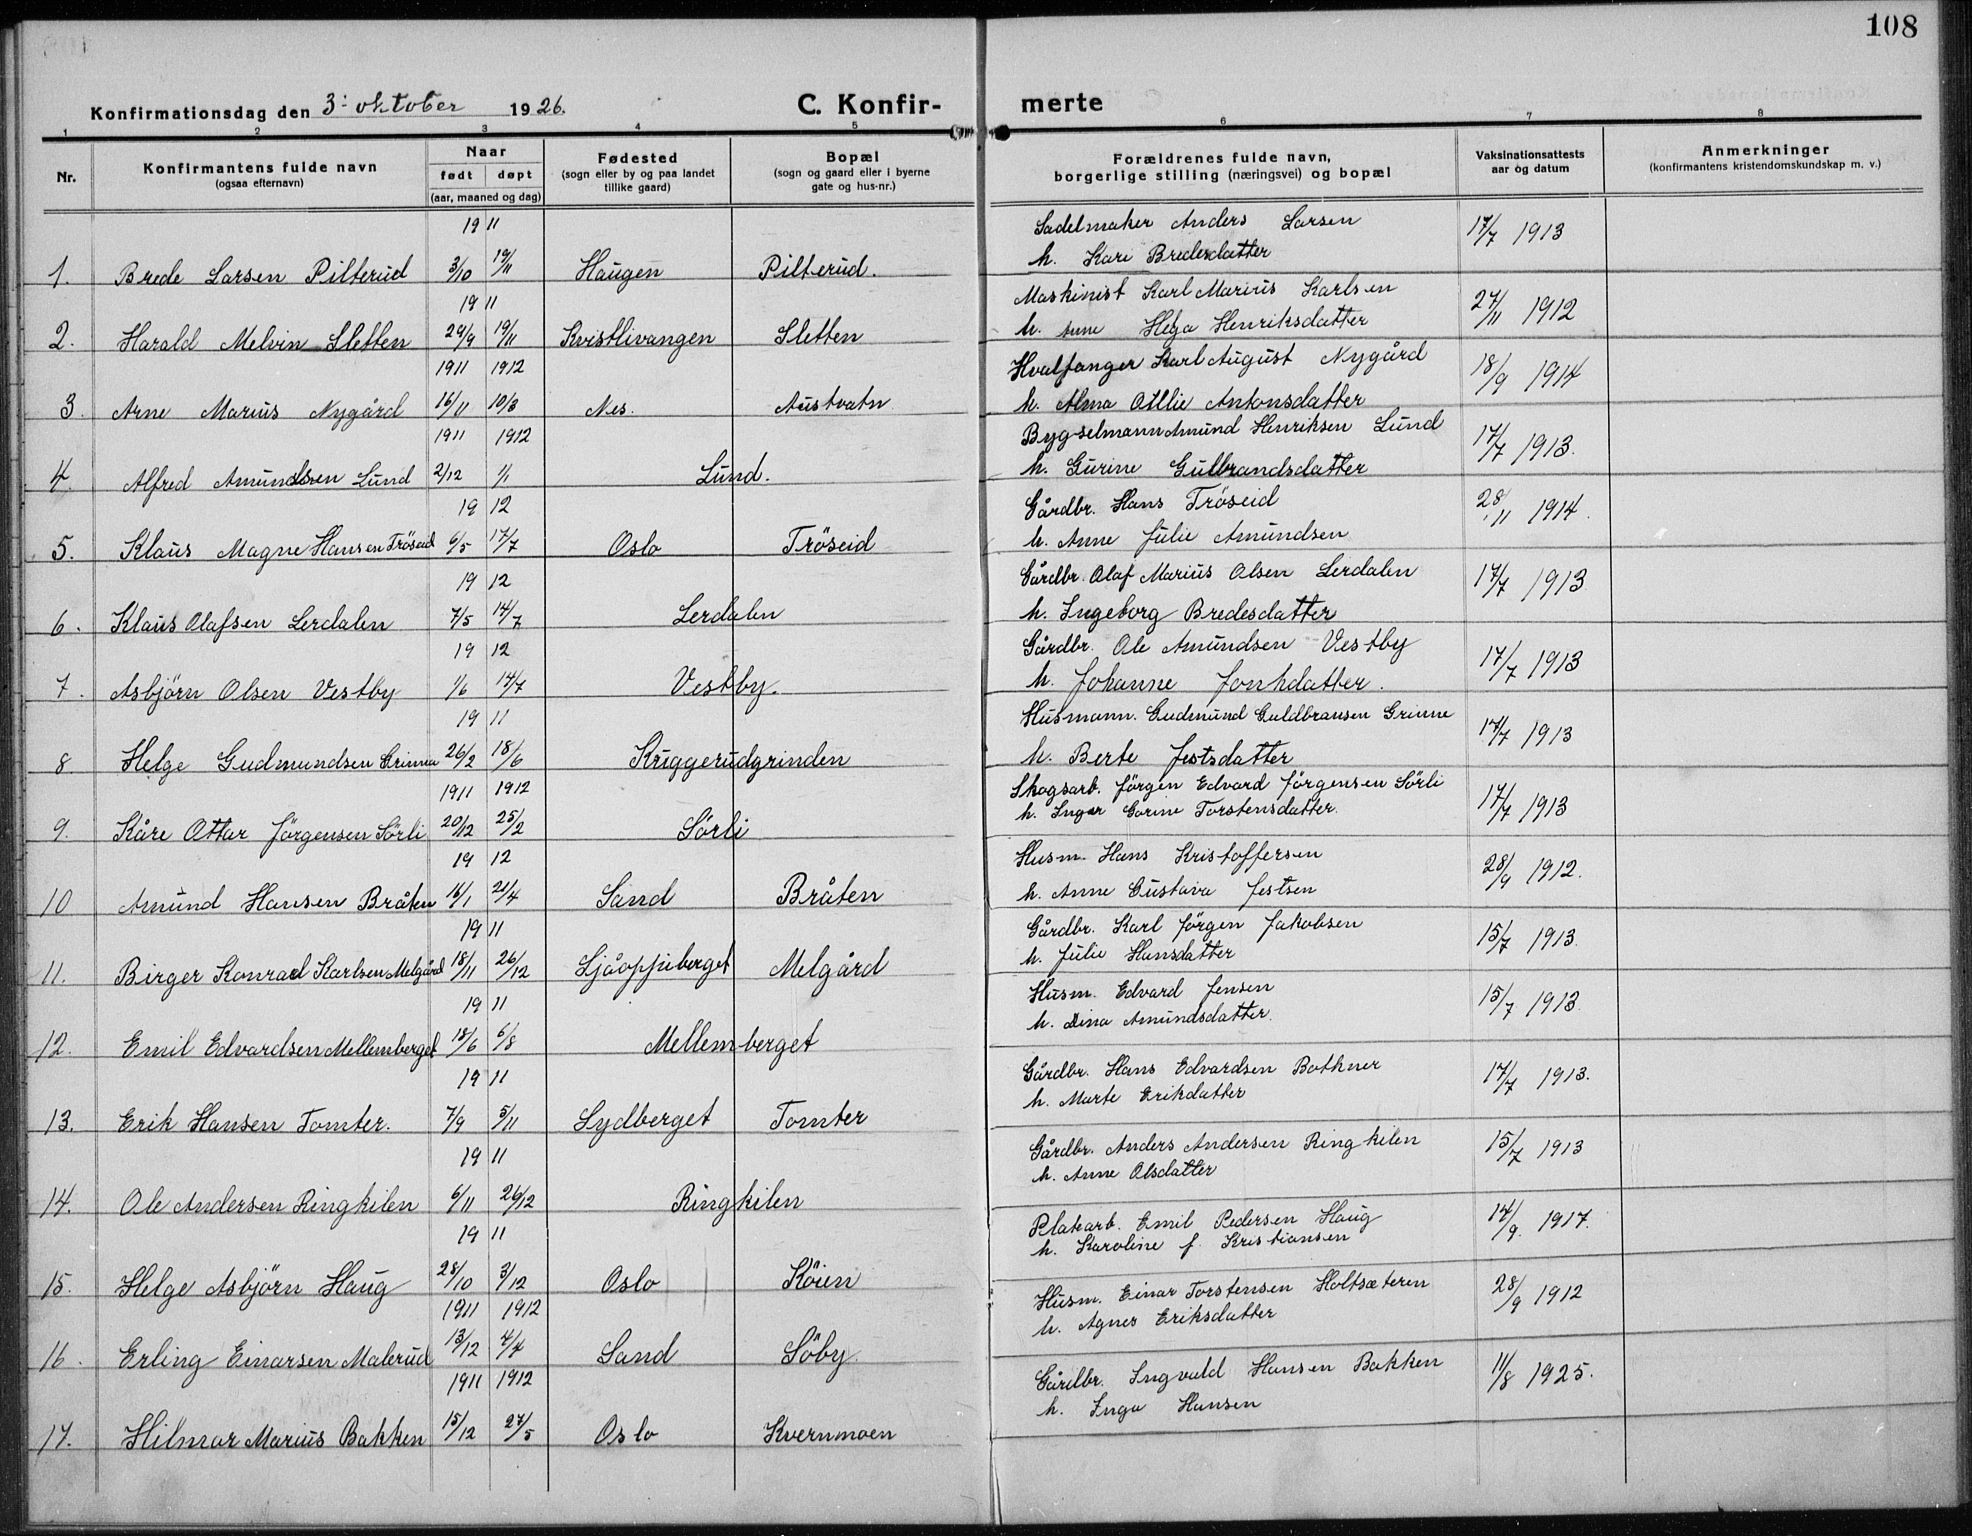 108
Konfirmationsdag den 3: oktober 1926.
C. Konfir-
merte
1 2 3 4 5 6 7 8
Nr.
Konfirmantens fulde navn
(ogsaa efternavn)
Naar
født døpt
(aar, maaned og dag)
Fødested
(sogn eller by og paa landet
tillike gaard)
Bopæl
(sogn og gaard eller i byerne
gate og hus-nr.)
Forældrenes fulde navn,
borgerlige stilling (næringsvei) og bopæl
Vaksinationsattests
aar og datum
Anmerkninger
(konfirmantens kristendomskundskap m. v.)
19 11
Sadelmaker Anders Larsen
17/7 1913
1. Brede Larsen Pilterud 3/10 19/11 Haugen Pilterud.
h. Kari Bredesdatter
19 11
Maskinist Karl Marius Karlsen
27/11 1912
2. Harald Melvin Sletten 29/9 19/11 Kvistlivangen Sletten
h. Helga Henriksdatter
1911 1912
Hvalfanger Karl August Nygård
18/9 1914
3. Arne Marius Nygård 16/11 10/3 Nes. Austvatn
h. Alma Otillie Antonsdatter
1911 1912
Bygselmann Amund Henriksen Lund
17/7 1913.
4. Alfred Amundsen Lund 2/12 1/1 Lund.
h. Gurine Gulbrandsdatter
19 12
Gårdbr. Hans Tröseid
28/11 1914.
5. Klaus Magne Hansen Tröseid 6/5 17/7 Oslo Tröseid
h. Anne Julie Amundsen
19 12
Gårdbr. Olaf Marius Olsen Lerdalen
17/7 1913
6. Klaus Olafsen Lerdalen 7/5 14/7 Lerdalen
h. Ingeborg Bredesdatter
19 12
Gårdbr. Ole Amundsen Vestby
17/7 1913
7. Asbjörn Olsen Vestby 1/6 14/7 Vestby.
h. Johanne Jonhdatter.
19 11
Husmann. Gudmund Guldbransen Grinne
17/7 1913
8 Helge Gudmundsen Grinna 26/2 18/6 Kruggerudgrinden
h. Berte Jestsdatter
1911 1912
Skogsarb. Jörgen Edvard Jörgensen Sörli
17/7 1913
9. Kåre Ottar Jörgensen Sörli 20/12 25/2 Sörli
h. Inger Gorine Torstensdatter.
19 12
Husm. Hans Kristoffersen
28/9 1912.
10 Amund Hansen Bråten 16/1 21/4 Sand Bråten
h. Anne Gustava Jestsen
19 11
Gårdbr. Karl Jörgen Jakobsen
15/7 1913.
11. Birger Konrad Karlsen Melgård 18/11 26/12 Ljåoppiberget Melgård
h. Julie Hansdatter
19 11
Husm. Edvard Jensen
15/7 1913
12. Emil Edvardsen Mellemberget 18/6 6/8 Mellemberget
h. Dina Amundsdatter.
19 11
Gårdbr. Hans Edvardsen Bothner
17/7 1913.
13. Erik Hansen Tomter. 7/9 5/11 Lydberget Tomter
h. Marte Erikdatter
19 11
Gårdbr. Anders Andersen Ringkilen
15/7 1913
14. Ole Andersen Ringkilen 6/11 26/12 Ringkilen
h. Anne Olsdatter
19 11
Platearb. Emil Pedersen Haug
14/9. 1917.
15. Helge Asbjörn Haug 28/10 3/12 Oslo Köien
h. Karoline f. Kristiansen
1911 1912
Husm. Einar Torstensen Holtsæteren
28/9 1912
16. Erling Einarsen Malerud 13/12 4/4 Sand Söby.
h. Agnes Eriksdatter
1911 1912
Gårdbr. Ingvald Hansen Bakken
11/8 1925.
17. Hilmar Marius Bakken 15/12 27/5 Oslo Kvernmoen
h. Inga Hansen